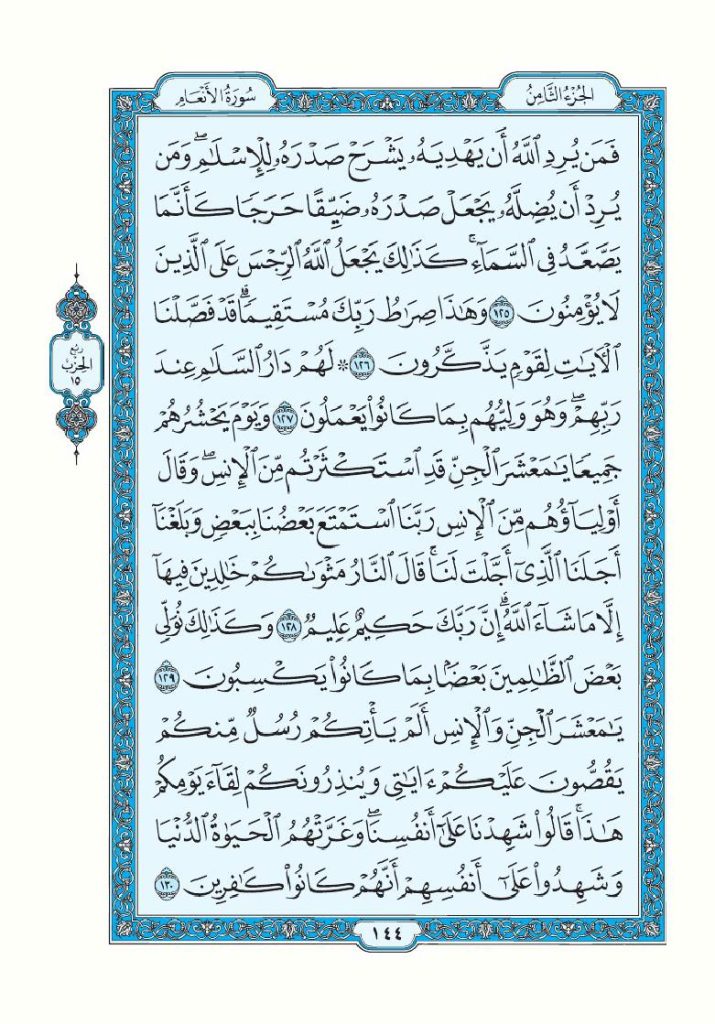 الجزء الثامن
سورة الأنعام
فَمَن يُرِدِ ٱللَّهُ أَن يَهۡدِيَهُۥ يَشۡرَحۡ صَدۡرَهُۥ لِلۡإِسۡلَٰمِۖ وَمَن
يُرِدۡ أَن يُضِلَّهُۥ يَجۡعَلۡ صَدۡرَهُۥ ضَيِّقًا حَرَجٗا كَأَنَّمَا
يَصَّعَّدُ فِي ٱلسَّمَآءِۚ كَذَٰلِكَ يَجۡعَلُ ٱللَّهُ ٱلرِّجۡسَ عَلَى ٱلَّذِينَ
لَا يُؤۡمِنُونَ ١٢٥ وَهَٰذَا صِرَٰطُ رَبِّكَ مُسۡتَقِيمٗاۗ قَدۡ فَصَّلۡنَا
ٱلۡأٓيَٰتِ لِقَوۡمٖ يَذَّكَّرُونَ ١٢٦ ۞ لَهُمۡ دَارُ ٱلسَّلَٰمِ عِندَ
رَبِّهِمۡۖ وَهُوَ وَلِيُّهُم بِمَا كَانُواْ يَعۡمَلُونَ ١٢٧ وَيَوۡمَ يَحۡشُرُهُمۡ
جَمِيعٗا يَٰمَعۡشَرَ ٱلۡجِنِّ قَدِ ٱسۡتَكۡثَرۡتُم مِّنَ ٱلۡإِنسِۖ وَقَالَ
أَوۡلِيَآؤُهُم مِّنَ ٱلۡإِنسِ رَبَّنَا ٱسۡتَمۡتَعَ بَعۡضُنَا بِبَعۡضٖ وَبَلَغۡنَآ
أَجَلَنَا ٱلَّذِيٓ أَجَّلۡتَ لَنَاۚ قَالَ ٱلنَّارُ مَثۡوَىٰكُمۡ خَٰلِدِينَ فِيهَآ
إِلَّا مَا شَآءَ ٱللَّهُۗ إِنَّ رَبَّكَ حَكِيمٌ عَلِيمٞ ١٢٨ وَكَذَٰلِكَ نُوَلِّي
بَعۡضَ ٱلظَّٰلِمِينَ بَعۡضَۢا بِمَا كَانُواْ يَكۡسِبُونَ ١٢٩
يَٰمَعۡشَرَ ٱلۡجِنِّ وَٱلۡإِنسِ أَلَمۡ يَأۡتِكُمۡ رُسُلٞ مِّنكُمۡ
يَقُصُّونَ عَلَيۡكُمۡ ءَايَٰتِي وَيُنذِرُونَكُمۡ لِقَآءَ يَوۡمِكُمۡ
هَٰذَاۚ قَالُواْ شَهِدۡنَا عَلَىٰٓ أَنفُسِنَاۖ وَغَرَّتۡهُمُ ٱلۡحَيَوٰةُ ٱلدُّنۡيَا
وَشَهِدُواْ عَلَىٰٓ أَنفُسِهِمۡ أَنَّهُمۡ كَانُواْ كَٰفِرِينَ ١٣٠
ربع
الحزب
١٥
١٤٤